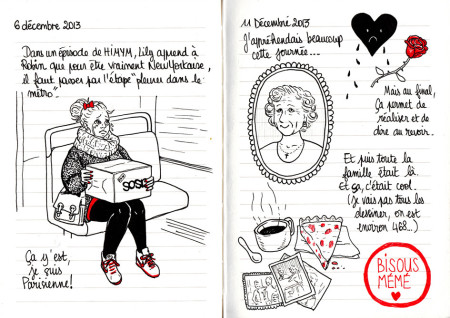 6 décembre 2013
Dans un épisode de HIMYM, Lily apprend à
Robin que pour être vraiment NewYorkaise,
il faut passer par l'étape "pleurer dans le
métro".
SOSO
Ça y est,
je suis
Parisienne!
11 Décembre 2013
J'appréhendais beaucoup
cette journée....
Mais au final,
Ça permet de
réaliser et de
dire au revoir.
Et puis toute la
famille était là.
Et ça, c'était cool.
(Je vais pas tous les
dessiner, on est
environ 468...)
BISOUS
MÉMÉ